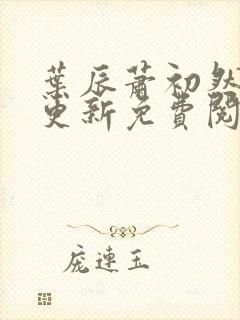 葉辰蕭初然
更新免費閱
庞連玉